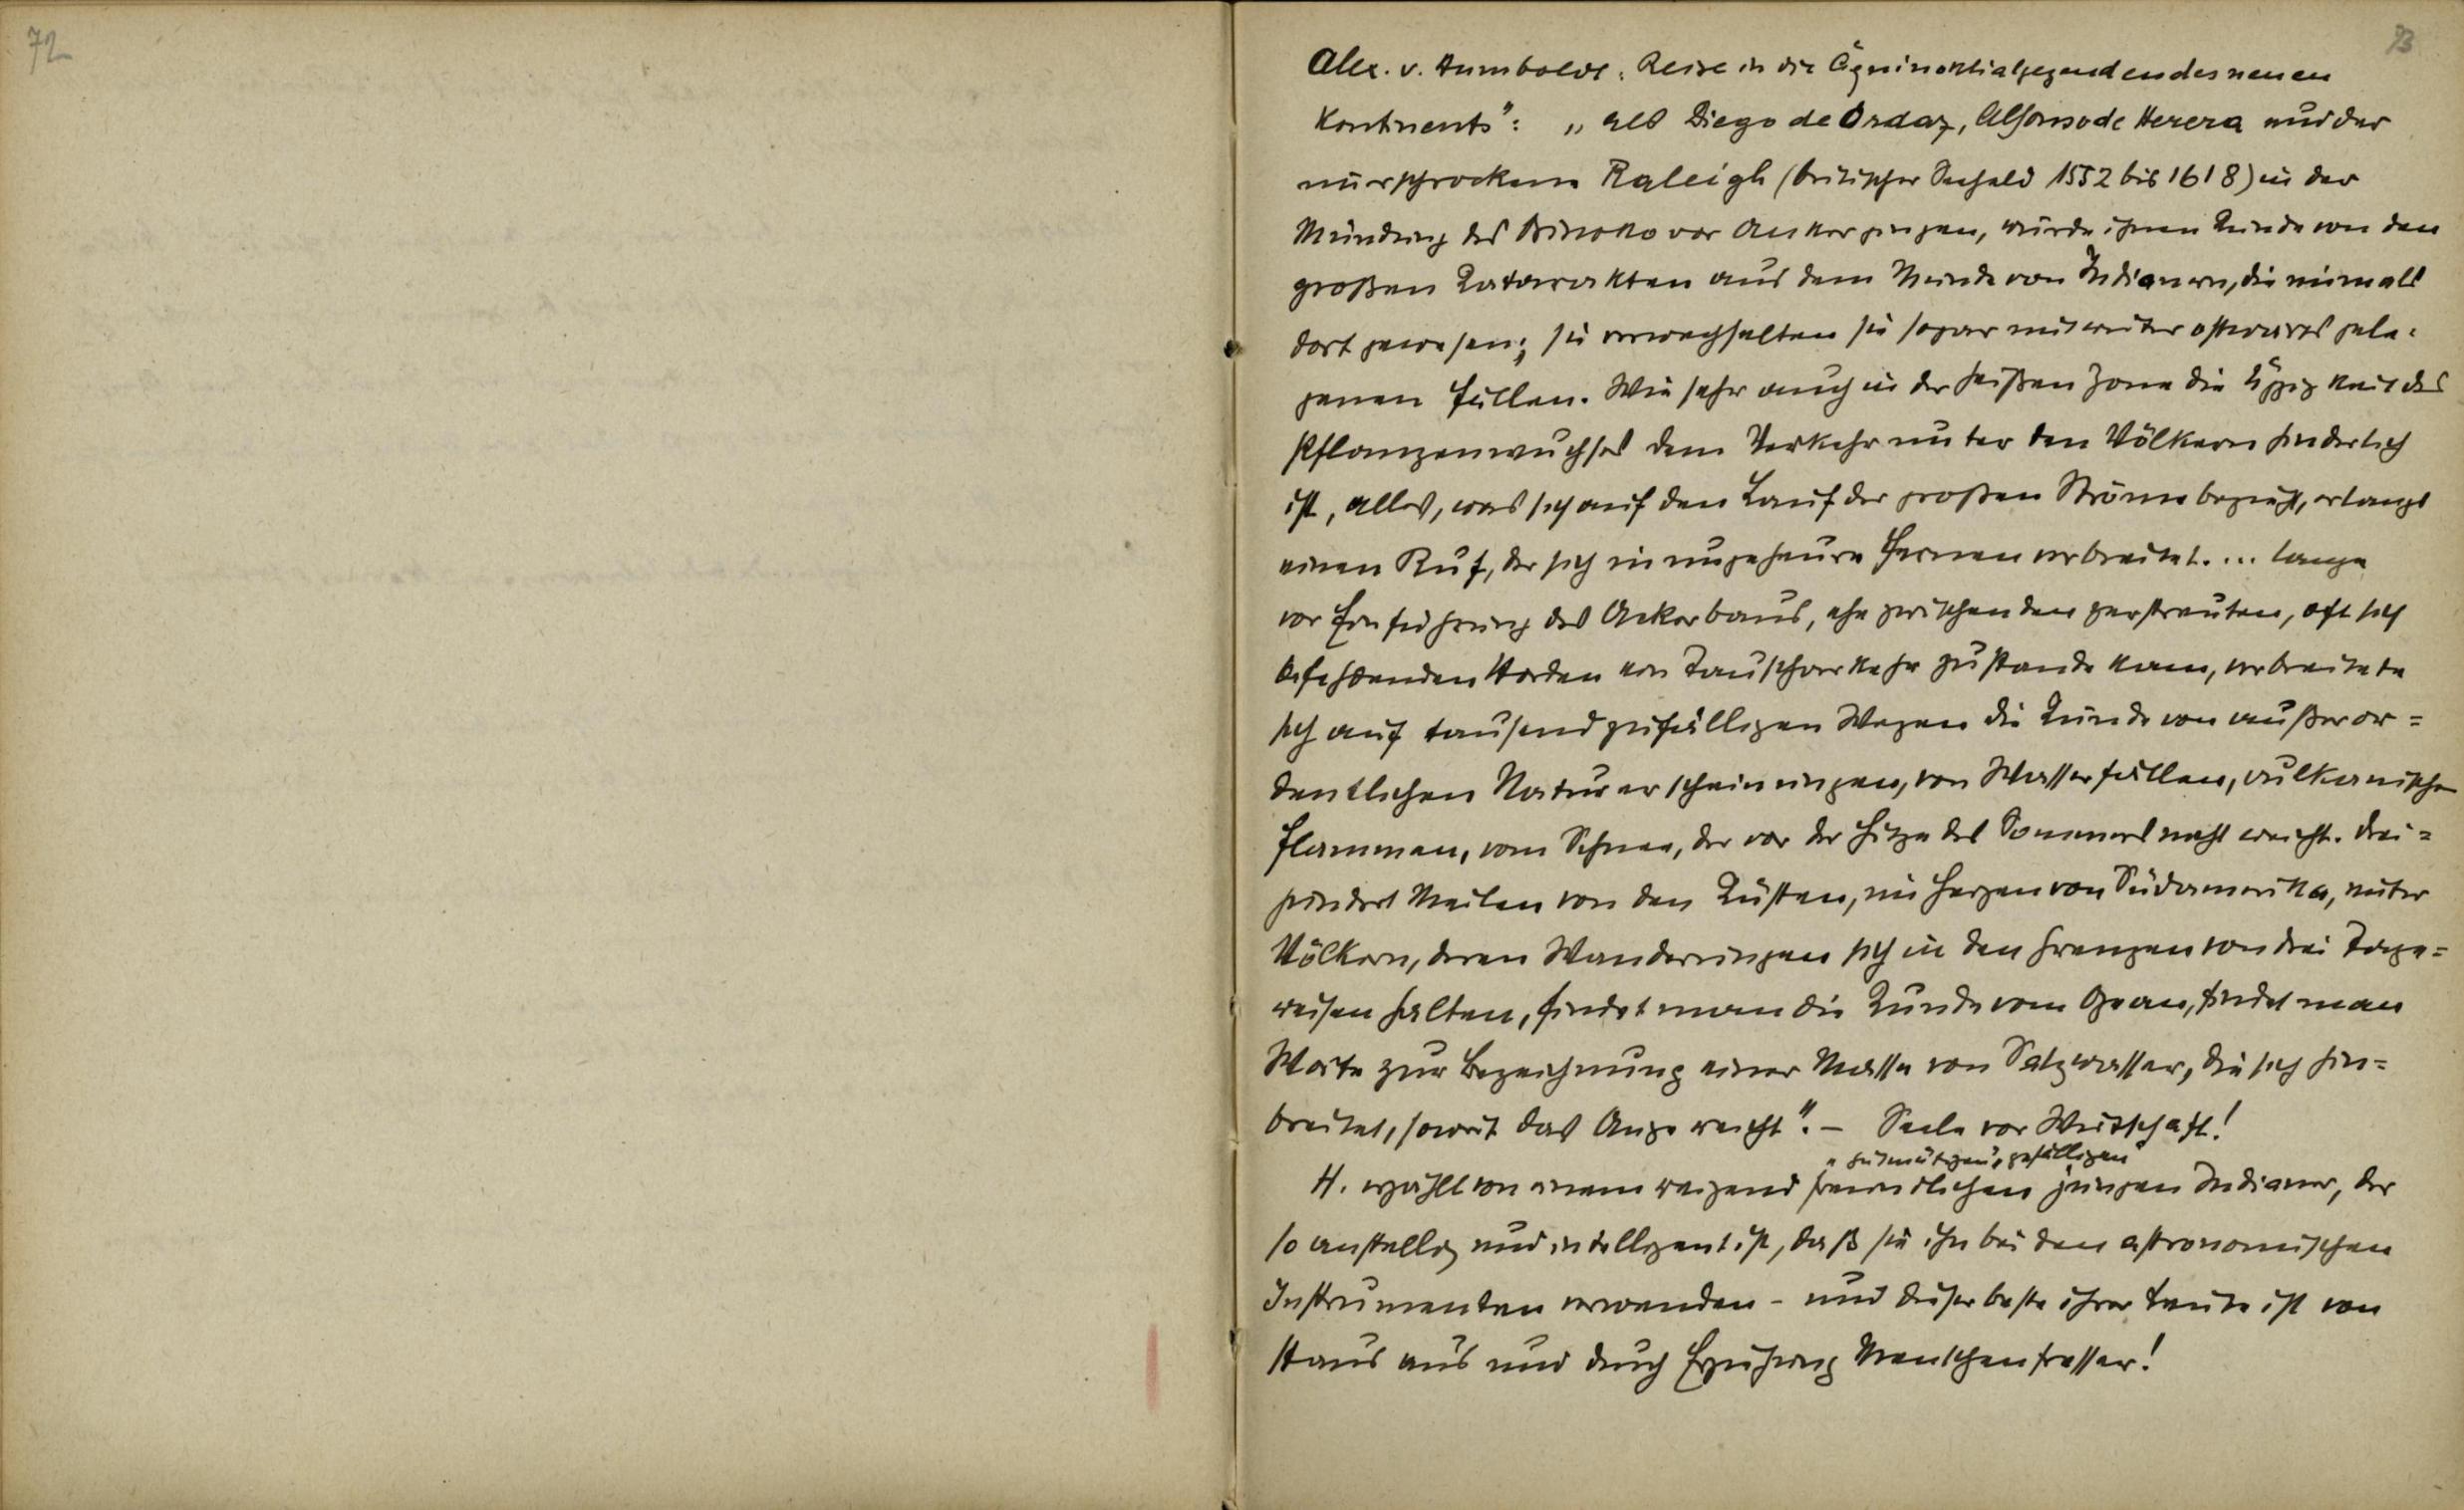 72
73
Alex. v. Humboldt: Reise in die Äquinoktialgegenden des neuen
Kontinents": „Als Diego de Ordaz, Alfonso de Herera und der
unerschrockene Raleigh (britischer Seeheld 1552 bis 1618) in der
Mündung des Orinoko vor Anker gingen, wurde ihnen Kunde von den
großen Katarakten aus dem Munde von Indianern, die niemals
dort gewesen; sie verwechselten sie sogar mit weiter ostwärts gele=
genen Fällen. Wie sehr auch in der heißen Zone die Üppigkeit des
Pflanzenwuchses dem Verkehr unter den Völkern hinderlich
ist, alles, was sich auf den Lauf der großen Ströme bezieht, erlangt
einen Ruf, der sich in ungeheure Fernen verbreitet. ... lange
vor Einführung des Ackerbaus, ehe zwischen den zerstreuten, oft sich
befehdenden Horden ein Tauschverkehr zustande kam, verbreitete
sich auf tausend zufälligen Wegen die Kunde von außeror=
dentlichen Naturerscheinungen, von Wasserfällen, vulkanischen
Flammen, vom Schnee, der vor der Hitze des Sommers nicht weicht. Drei=
hundert Meilen von den Küsten, im Herzen von Südamerika, unter
Völkern, deren Wanderungen sich in den Grenzen von drei Tage=
reisen halten, findet man die Kunde vom Ozean, findet man
Worte zur Bezeichnung einer Masse von Salzwasser, die sich hin=
breitet, soweit das Auge reicht". – Seele vor Wirtschaft!
„gutmütigen, gefälligen"
H. erzählt von einem reizend freundlichen jungen Indianer, der
so anstellig und intelligent ist, daß sie ihn bei den astronomischen
Instrumenten verwenden – und dieser beste ihrer Leute ist von
Haus aus und durch Erziehung Menschenfresser!